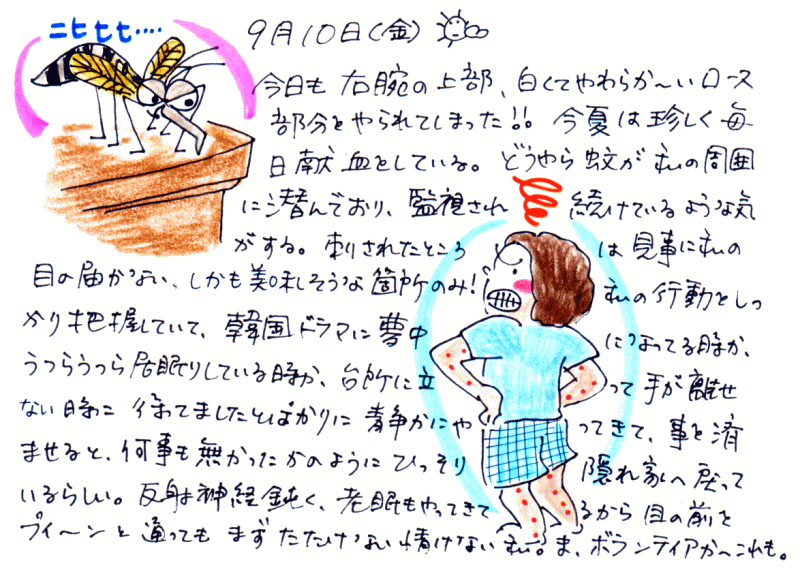 ニヒヒヒ････
9月10日(金)
今日も右腕の上部、白くてやわらか〜いロース
部分をやられてしまった!! 今夏は珍しく毎
日献血をしている。どうやら蚊が私の周囲
に潜んでおり、監視され続けているような気
がする。刺されたところは見事に私の
目の届かない、しかも美味しそうな箇所のみ! 私の行動をしっ
かり把握していて、韓国ドラマに夢中になってる時か、
うつらうつら居眠りしている時か、台所に立って手が離せ
ない時に待ってましたとばかりに静かにやってきて、事を済
ませると、何事も無かったかのようにひっそり隠れ家へ戻って
いるらしい。反射神経鈍く、老眼もやってきてるから目の前を
プィ〜ンと通ってもまずたたけない情けない私。ま、ボランティアか〜これも。